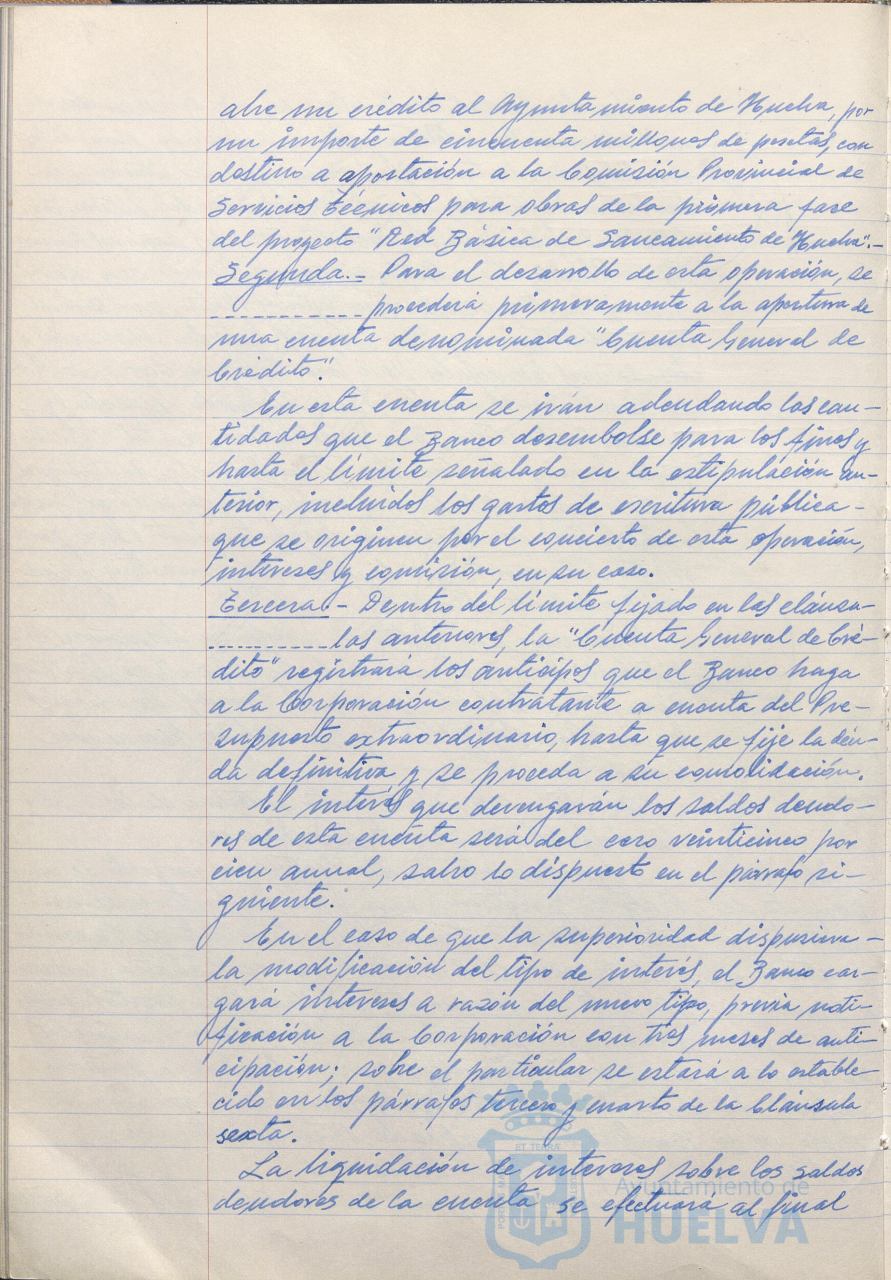 abre un crédito al Ayuntamiento de Huelva, por
un importe de cincuenta millones de pesetas, con
destino a aportación a la Comisión Provincial de
Servicios Técnicos para obras de la primera fase
del proyecto "Red Básica de Saneamiento de Huelva".-
Segunda.- Para el desarrollo de esta operación, se
------------ procederá primeramente a la apertura de
una cuenta denominada "Cuenta General de
Crédito".
En esta cuenta se irán adeudando las can-
tidades que el Banco desembolse para los fines y
hasta el límite señalado en la estipulación an-
terior, incluídos los gastos de escritura pública-
que se originen por el concierto de esta operación,
intereses y comisión, en su caso.
Tercera.- Dentro del límite fijado en las cláusu-
---------- las anteriores, la "Cuenta General de Cré-
dito" registrará los anticipos que el Banco haga
a la Corporación contratante a cuenta del Pre-
supuesto extraordinario, hasta que se fije la deu-
da definitiva y se proceda a su consolidación.
El interés que devengarán los saldos deudo-
res de esta cuenta será del cero veinticinco por
cien anual, salvo lo dispuesto en el párrafo si-
guiente.
En el caso de que la superioridad dispusiera-
la modificación del tipo de interés, el Banco car-
gará intereses a razón del nuevo tipo, previa noti-
ficación a la Corporación con tres meses de anti-
cipación; sobre el particular se estará a lo estable-
cido en los párrafos tercero y cuarto de la Cláusula
sexta.
La liquidación de intereses sobre los saldos
deudores de la cuenta se efectuará al final
Ayuntamiento de
HUELVA